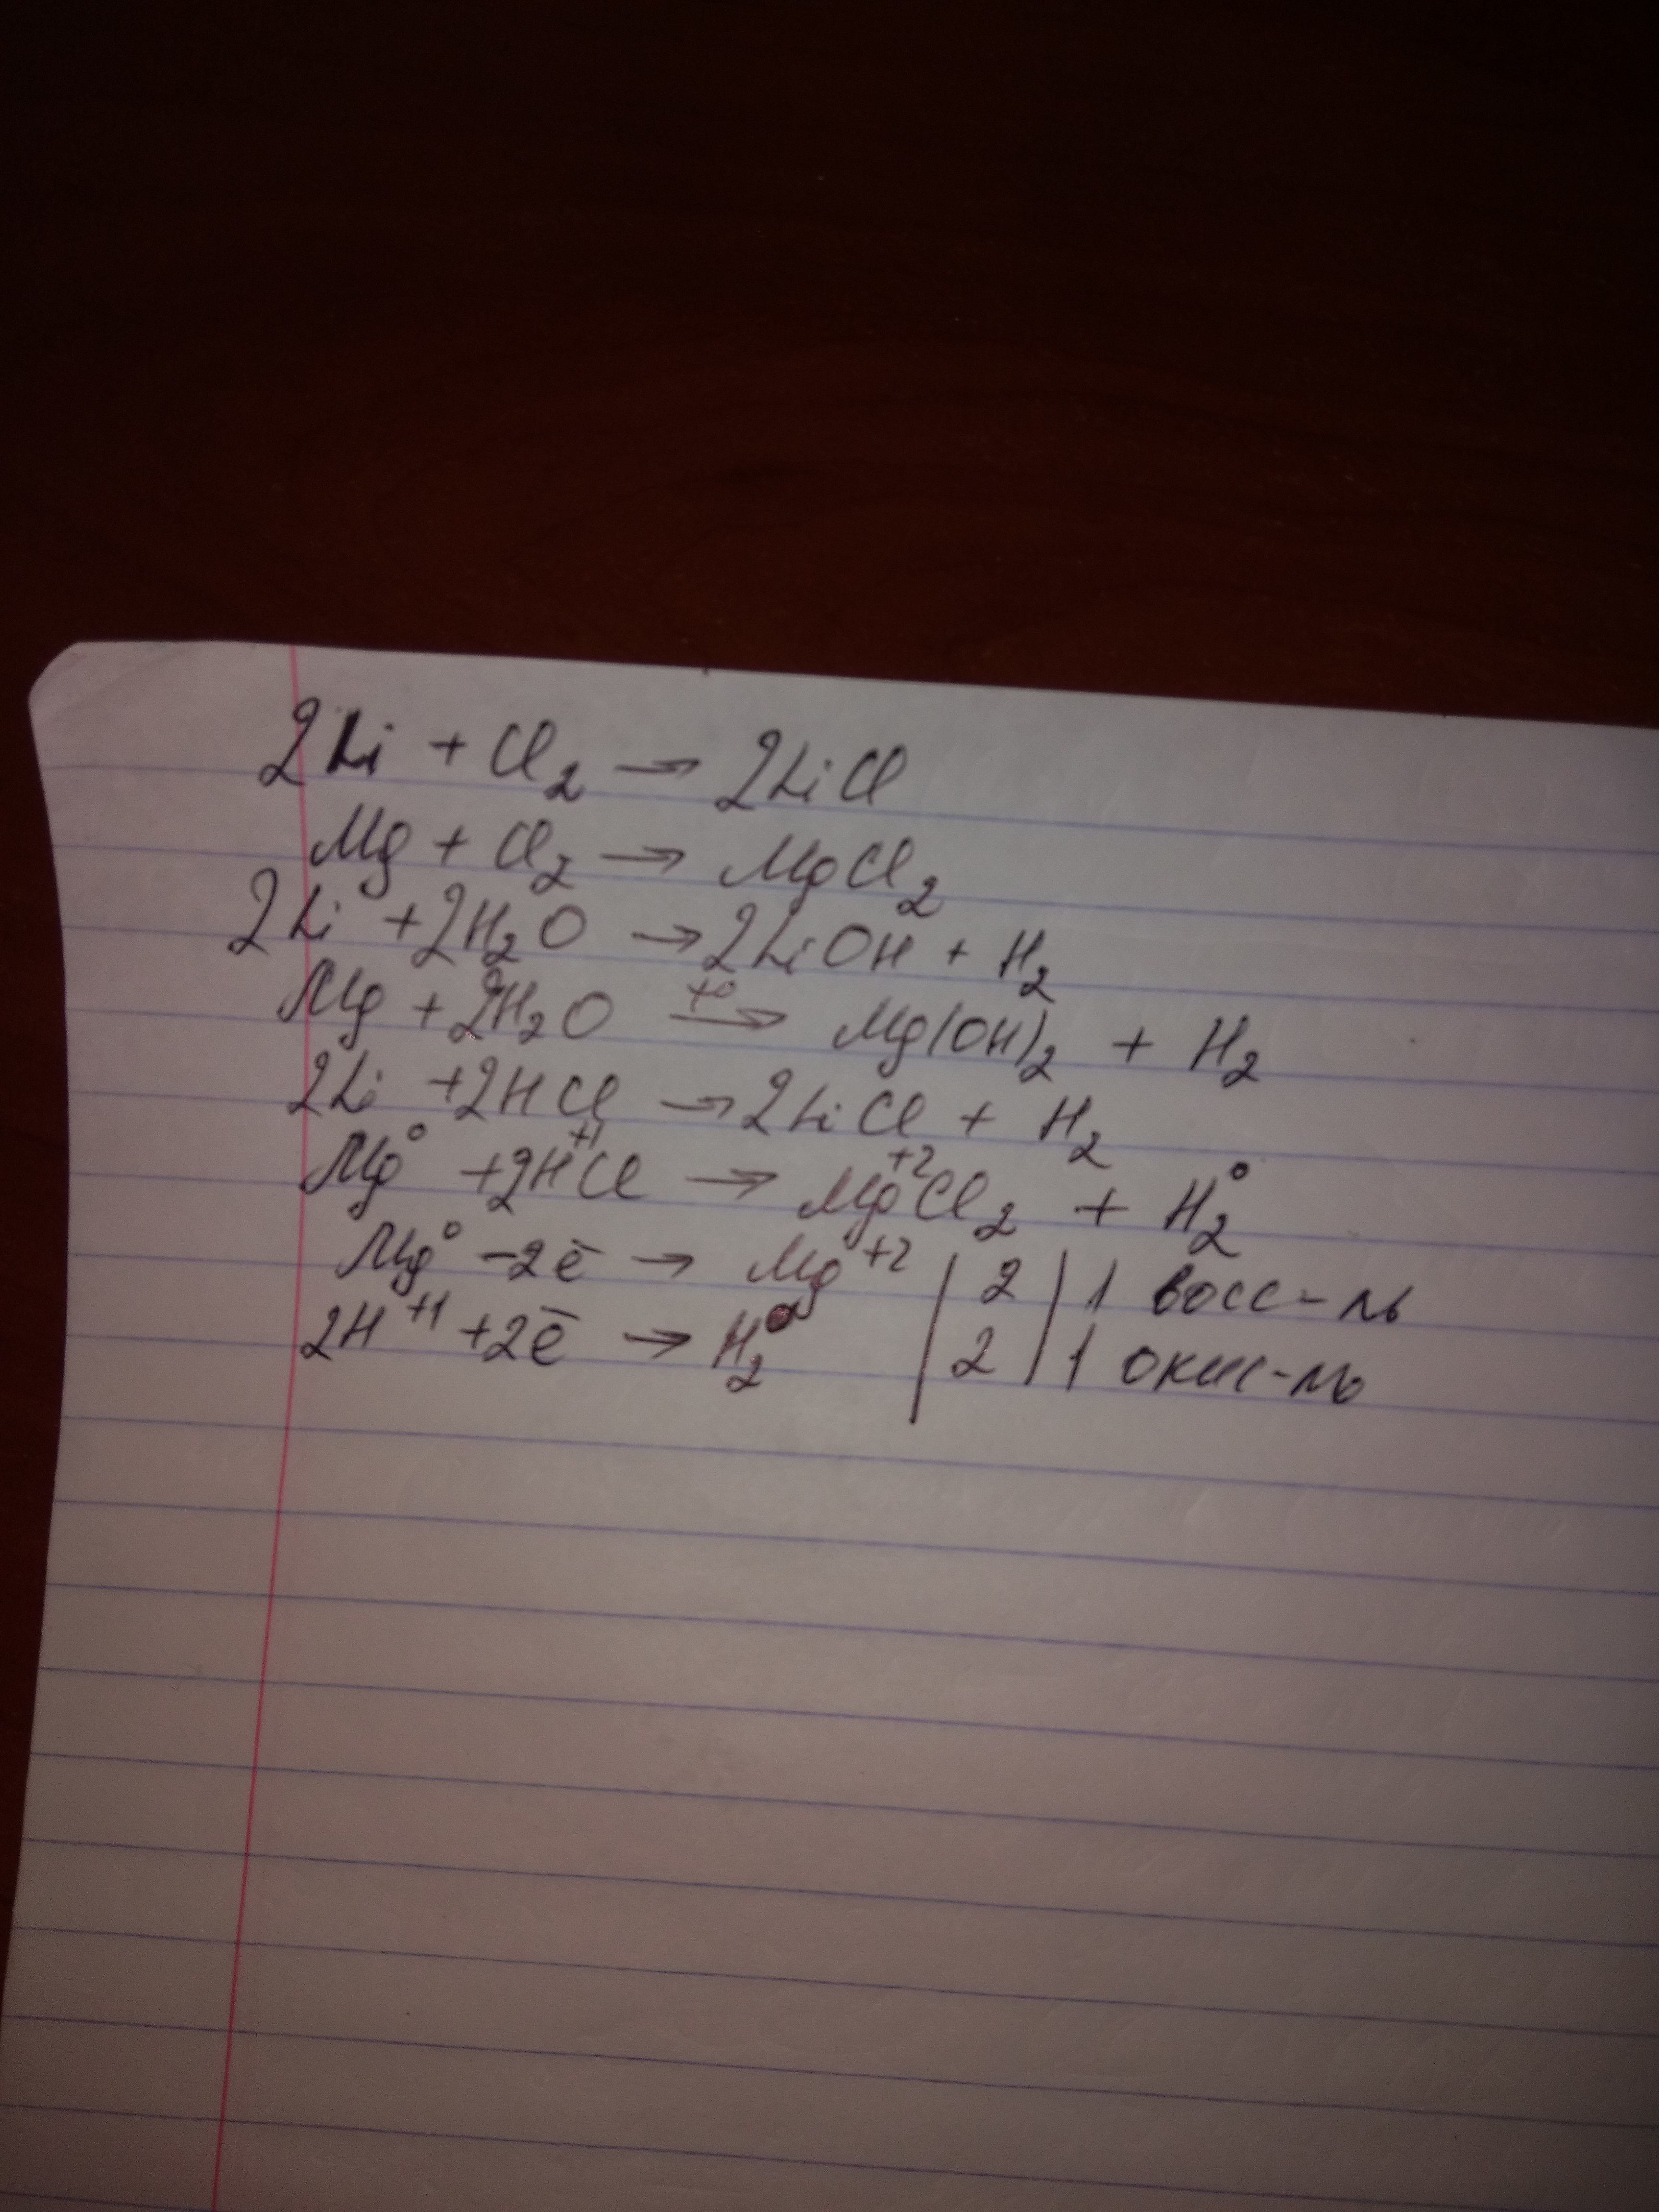 2Li + Cl₂ → 2LiCl
Mg + Cl₂ → MgCl₂
2Li + 2H₂O → 2LiOH + H₂
Mg + 2H₂O →(t°) Mg(OH)₂ + H₂
2Li + 2HCl → 2LiCl + H₂
Mg⁰ + 2H⁺¹Cl → Mg⁺²Cl₂ + H₂⁰
Mg⁰ - 2ē → Mg⁺² | 2 | 1 восс-ль
2H⁺¹ + 2ē → H₂⁰ | 2 | 1 окис-ль